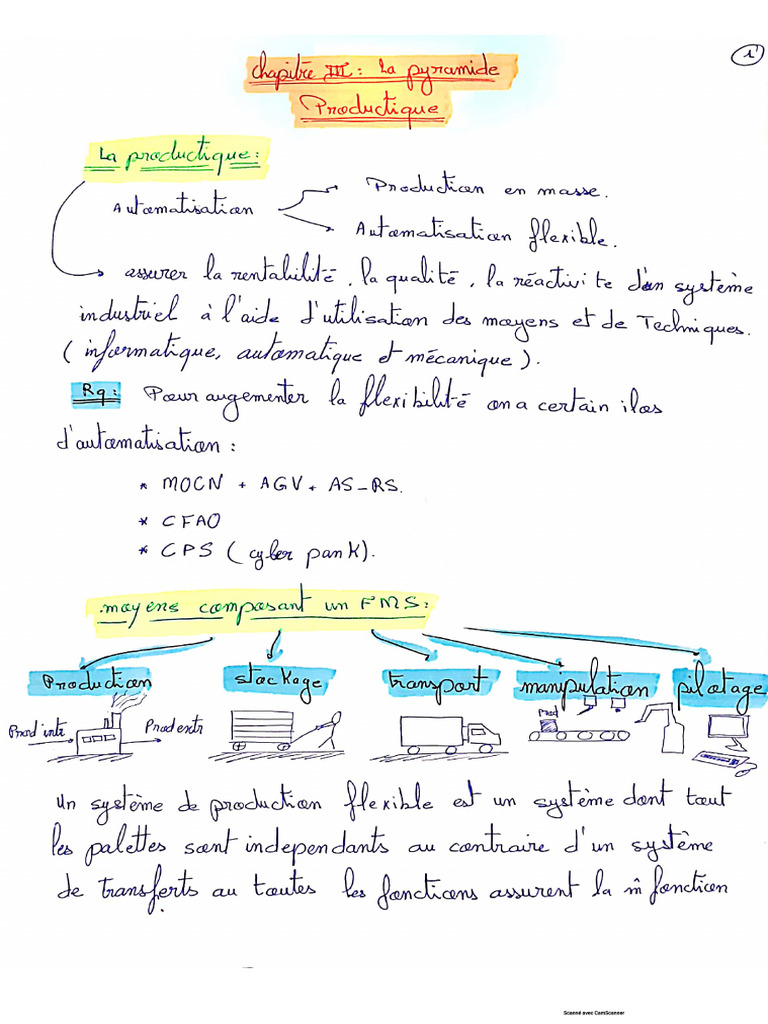 1
Chapitre III : La pyramide
Productique
La productique :
Production en masse.
Automatisation
Automatisation flexible.
assurer la rentabilité, la qualité, la réactivite d'un système
industriel à l'aide d'utilisation des moyens et de Techniques.
(informatique, automatique et mécanique).
Rq : Pour augementer la flexibilité on a certain ilos
d'automatisation :
* MOCN + AGV + AS-RS.
* CFAO
* CPS (cyber pank).
moyens composant un FMS :
Production stockage transport manipulation pilotage
Prod intr Prod extr Prod
Un système de production flexible est un système dont tout
les palettes sont independants au contraire d'un système
de transferts au toutes les fonctions assurent la m̂ fonction
Scanné avec CamScanner